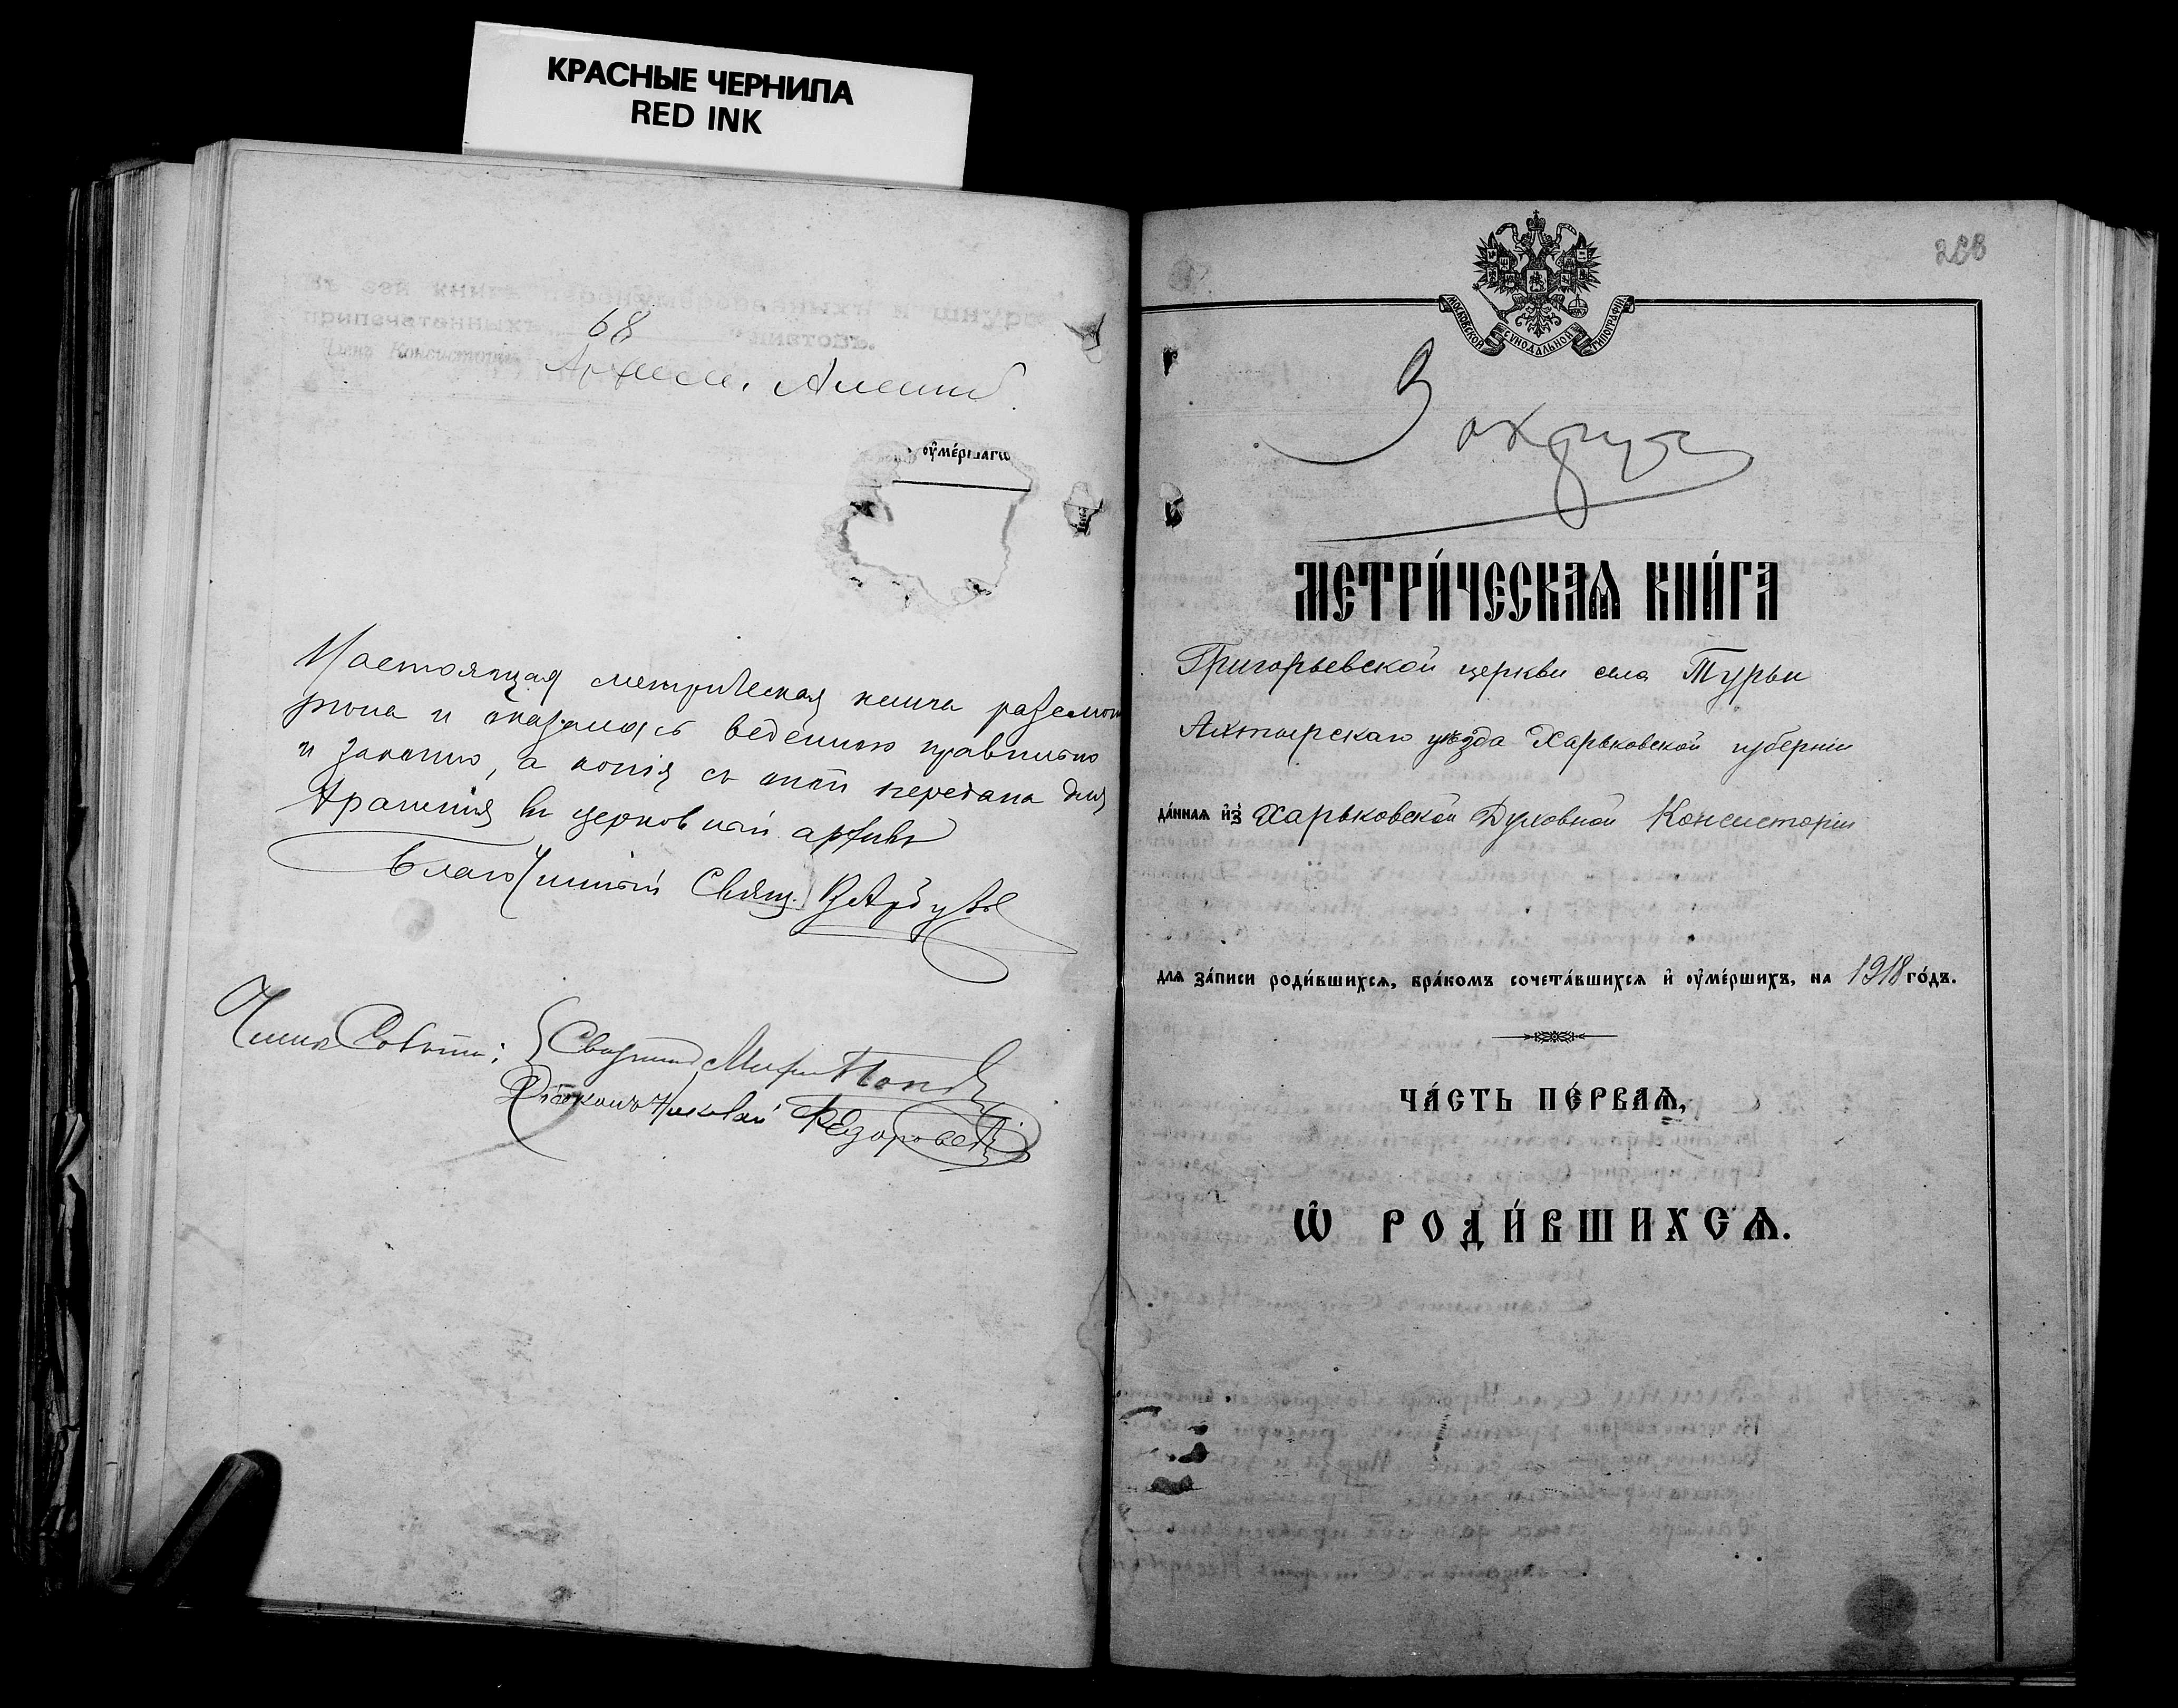 КРАСНЫЕ ЧЕРНИЛА
RED INK
Въ сей книгѣ перенумерованныхъ и шнуро
припечатанныхъ 68 листовъ.
Членъ Консисторіи
оу҆ме́ршагѡ
Настоящая метрическая книга разсмот
рена и оказалась веденною правильно
и законно, а копія съ оной передана для
храненія въ церковный архивъ
Благочинный Свящ.
Члены Совѣта: Священникъ Попов
Діаконъ Николай Ѳедоровскій
288
МОСКОВСКОЙ СѴНОДАЛЬНОЙ ТИПОГРАФІИ
3 округа
МЕТРИ́ЧЕСКАѦ КНИ́ГА
Григорьевской церкви села Турьи
Ахтырскаго уѣзда Харьковской губерніи
да́ннаѧ и҆з̾ Харьковской Духовной Консисторіи
длѧ за́писи роди́вшихсѧ, бра́комъ сочета́вшихсѧ и҆ оу҆ме́ршихъ, на 1918 го́дъ.
ЧА́СТЬ ПЕ́РВАѦ,
Ѡ҆ РОДИ́ВШИХСѦ.